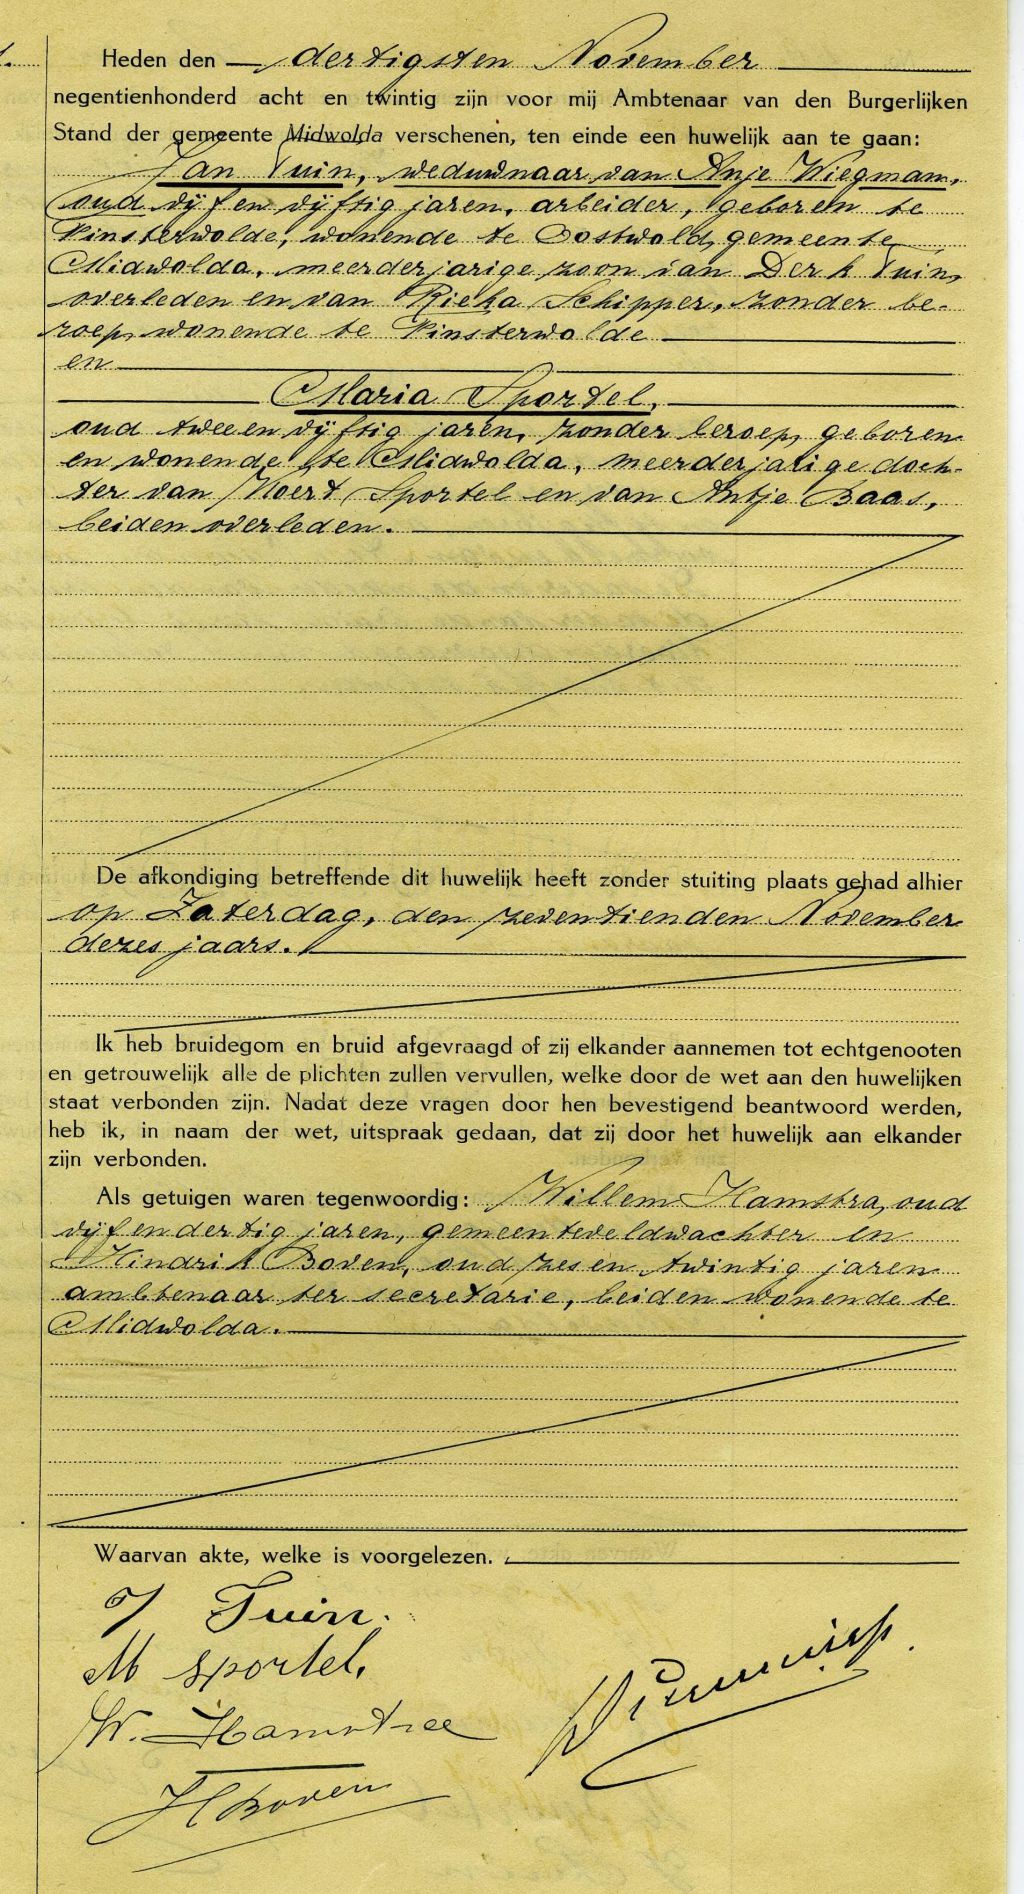 Heden den dertigsten November
negentienhonderd acht en twintig zijn voor mij Ambtenaar van den Burgerlijken
Stand der gemeente Midwolda verschenen, ten einde een huwelijk aan te gaan:
Jan Tuin, weduwnaar van Anje Wiegman,
oud vijf en vijftig jaren, arbeider, geboren te
Finsterwolde, wonende te Oostwold, gemeente
Midwolda, meerderjarige zoon van Derk Tuin,
overleden en van Rieka Schipper, zonder be-
roep, wonende te Finsterwolde
en
Maria Sportel,
oud twee en vijftig jaren, zonder beroep, geboren
en wonende te Midwolda, meerderjarige doch-
ter van Koert Sportel en van Antje Baas,
beiden overleden.
De afkondiging betreffende dit huwelijk heeft zonder stuiting plaats gehad alhier
op Zaterdag, den zeventienden November
dezes jaars.
Ik heb bruidegom en bruid afgevraagd of zij elkander aannemen tot echtgenooten
en getrouwelijk alle de plichten zullen vervullen, welke door de wet aan den huwelijken
staat verbonden zijn. Nadat deze vragen door hen bevestigend beantwoord werden,
heb ik, in naam der wet, uitspraak gedaan, dat zij door het huwelijk aan elkander
zijn verbonden.
Als getuigen waren tegenwoordig: Willem Hamstra, oud
vijf en dertig jaren, gemeenteveldwachter en
Hindrik Boven, oud zes en twintig jaren
ambtenaar ter secretarie, beiden wonende te
Midwolda.
Waarvan akte, welke is voorgelezen.
J Tuin.
M Sportel.
W. Hamstra
H Boven